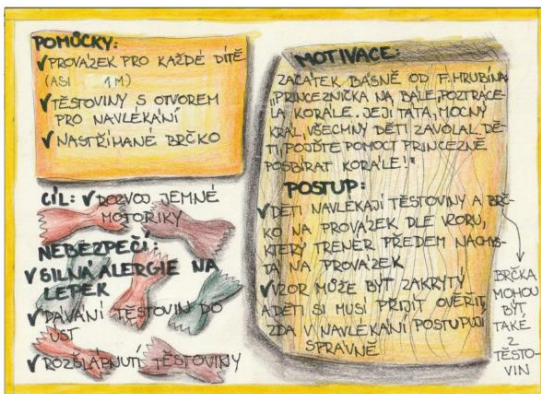 POMŮCKY:
✓PROVÁZEK PRO KAŽDÉ DÍTĚ
(ASI 1M)
✓TĚSTOVINY S OTVOREM
PRO NAVLÉKÁNÍ
✓NASTŘÍHANÉ BRČKO
CÍL: ✓ROZVOJ JEMNÉ
MOTORIKY
NEBEZPEČÍ:
✓SILNÁ ALERGIE NA
LEPEK
✓DÁVÁNÍ TĚSTOVIN DO
ÚST
✓ROZŠLÁPNUTÍ TĚSTOVINY
MOTIVACE:
ZAČÁTEK BÁSNĚ OD F. HRUBÍNA
„PRINCEZNIČKA NA BÁLE, POZTRÁCE-
LA KORÁLE. JEJÍ TÁTA, MOCNÝ
KRÁL, VŠECHNY DĚTI ZAVOLAL. DĚ-
TI, POJĎTE POMOCT PRINCEZNĚ
POSBÍRAT KORÁLE!"
POSTUP:
✓DĚTI NAVLÉKAJÍ TĚSTOVINY A BRČ-
KO NA PROVÁZEK DLE VZORU,
KTERÝ TRENÉR PŘEDEM NACHYS-
TÁ NA PROVÁZEK
✓VZOR MŮŽE BÝT ZAKRYTÝ
A DĚTI SI MUSÍ PŘIJÍT OVĚŘIT,
ZDA V NAVLÉKÁNÍ POSTUPUJÍ
SPRÁVNĚ
BRČKA
MOHOU
BÝT
TAKÉ
Z
TĚSTO-
VIN